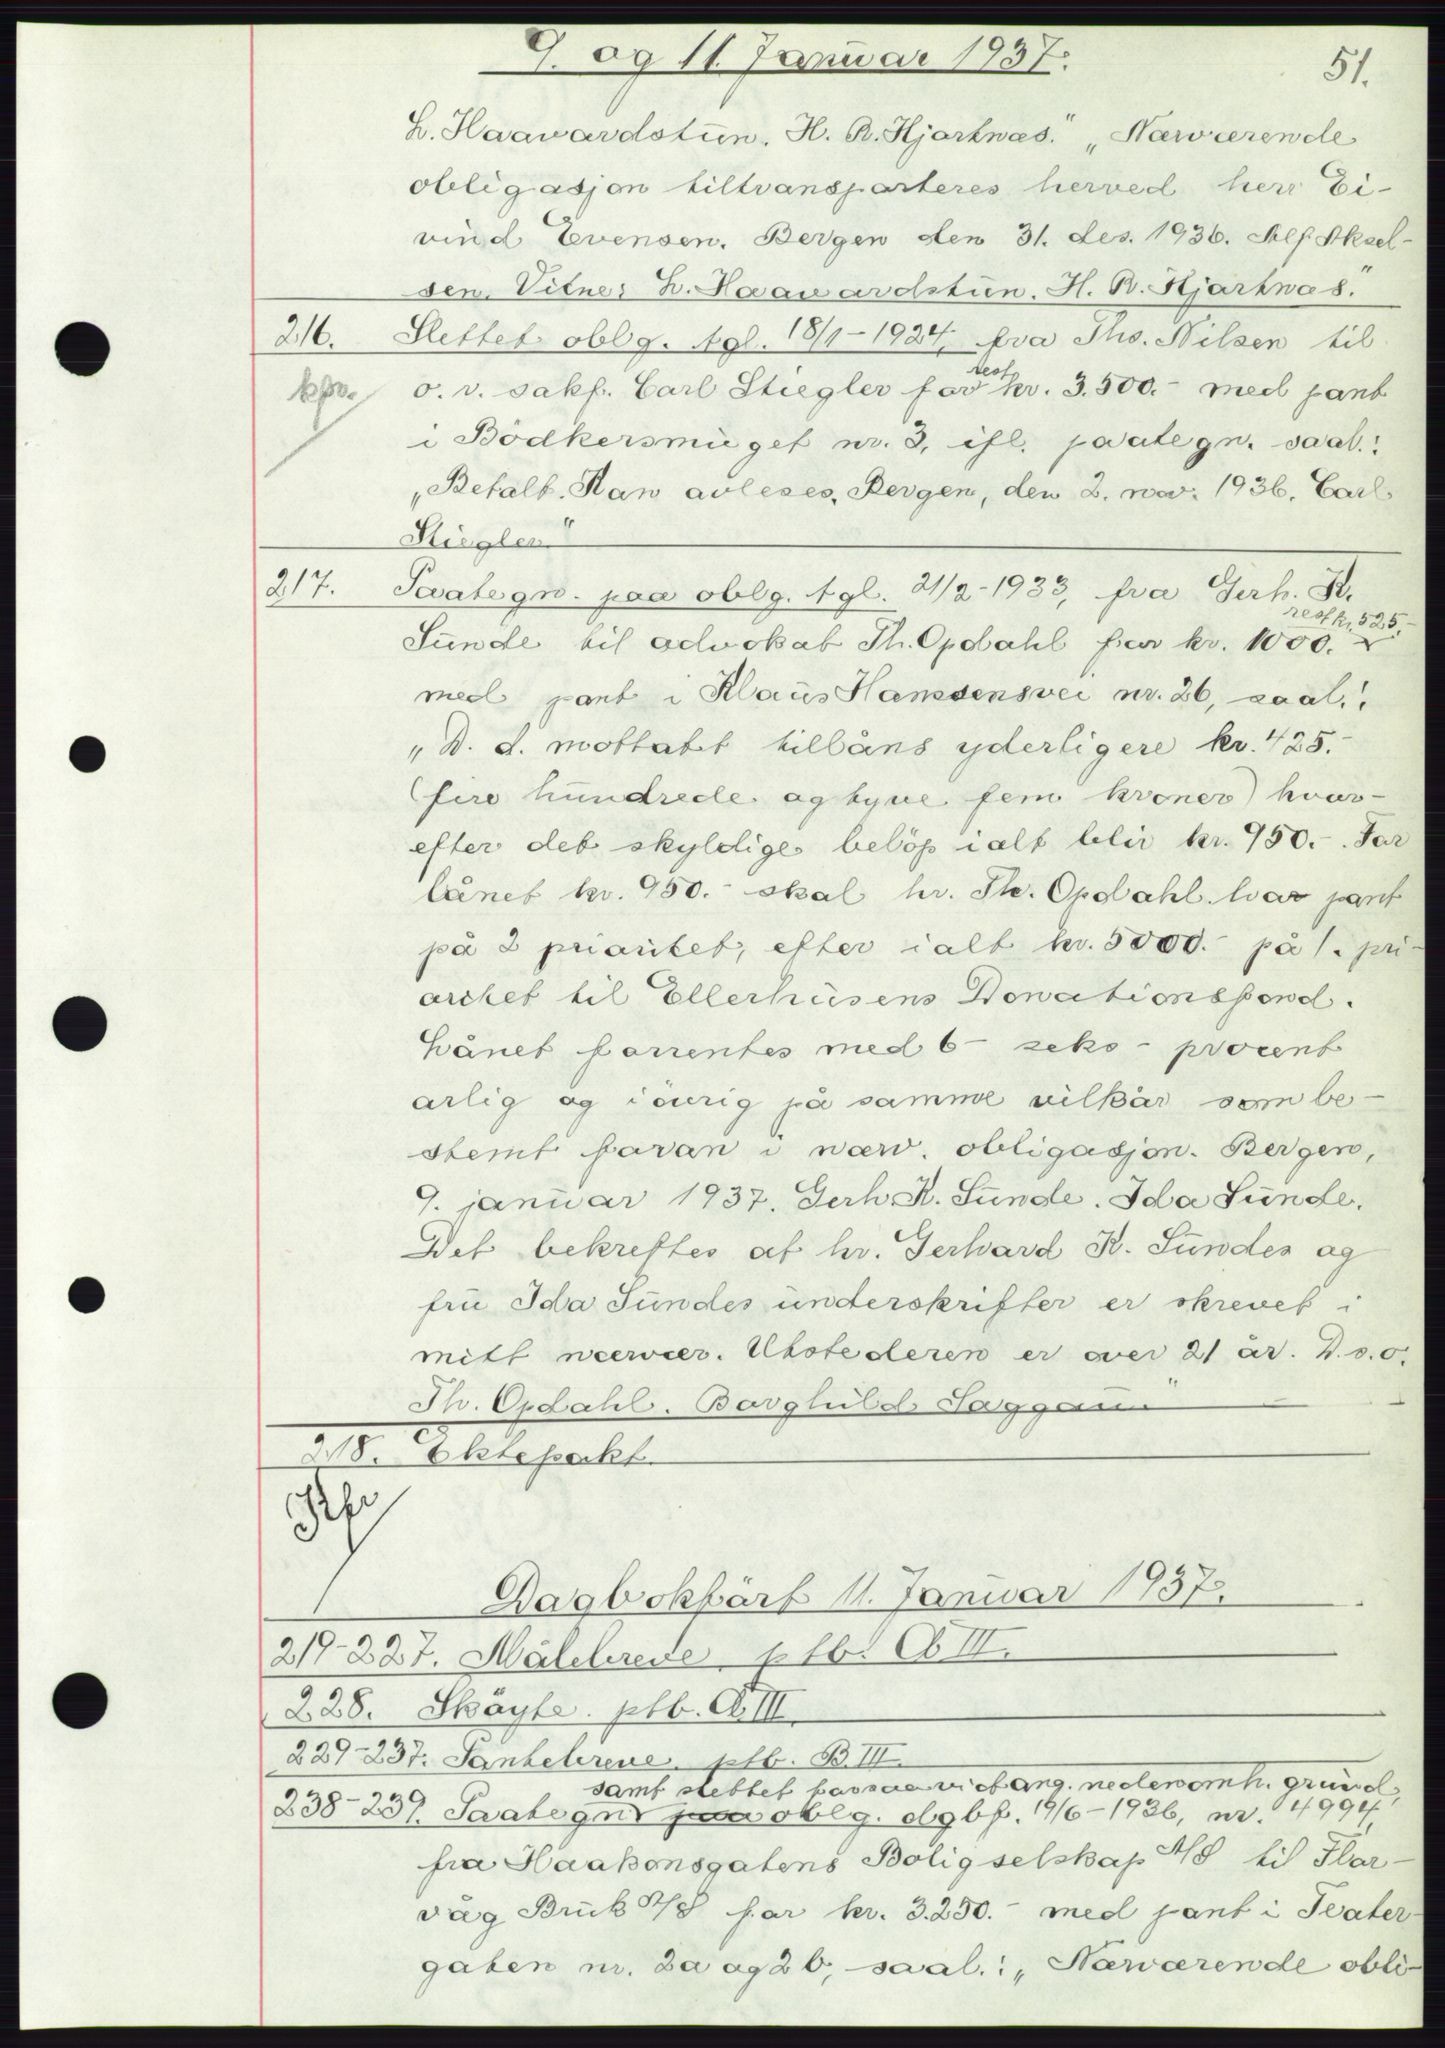 9. og 11. Januar 1937.
51.
L. Haavardstun. H. R. Hjartnæs." „Nærværende
obligasjon tiltransporteres herved herr Ei-
vind Evensen. Bergen den 31. des. 1936. Alf Aksel-
sen. Vitne: L. Haavardstun. H. R. Hjartnæs."
216. Slettet oblg. tgl. 18/1-1924, fra Ths. Nilsen til
kfr. o. r. sakf. Carl Stiegler for rest kr. 3.500.- med pant
i Bödkersmuget nr. 3, ifl. paategn. saal.:
„Betalt. Kan avleses. Bergen, den 2. nov. 1936. Carl
Stiegler"
217. Paategn. paa oblg. tgl. 21/2-1933, fra Gerh. K.
rest kr. 525.-
Sunde til advokat Th. Opdahl for kr. 1000.
med pant i Klaus Hanssensvei nr. 26, saal.:
„D. d. mottatt tillåns yderligere kr. 425.-
(fire hundrede og tyve fem kroner) hvor-
efter det skyldige belöp ialt blir kr. 950.-. For
lånet kr. 950.- skal hr. Th. Opdahl har pant
på 2 prioritet, efter ialt kr. 5000.- på 1. pri-
oritet til Ellerhusens Donationsfond.
Lånet forrentes med 6 - seks - procent
arlig og iövrig på samme vilkår som be-
stemt foran i nærv. obligasjon. Bergen,
9. januar 1937. Gerh. K. Sunde. Ida Sunde.
Det bekreftes at hr. Gerhard K. Sundes og
fru Ida Sundes underskrifter er skrevet i
mitt nærvær. Utstederen er over 21 år. D.s.o.
Th. Opdahl. Borghild Saggau"
218. Ektepakt.
Kfr
Dagbokfört 11. Januar 1937.
219-227. Målebreve. ptb. Cb III.
228. Sköyte. ptb. Cb III.
229-237. Pantebreve. ptb. B. III.
samt slettet ang. nedenomh. grund,
238-239. Paategn. paa oblg. dgbf. 19/6-1936, nr. 4994,
fra Haakonsgatens Boligselskap A/S til Flor-
våg Bruk A/S for kr. 3.250.- med pant i Teater-
gaten nr. 2a og 2b, saal.: „Nærværende obli-